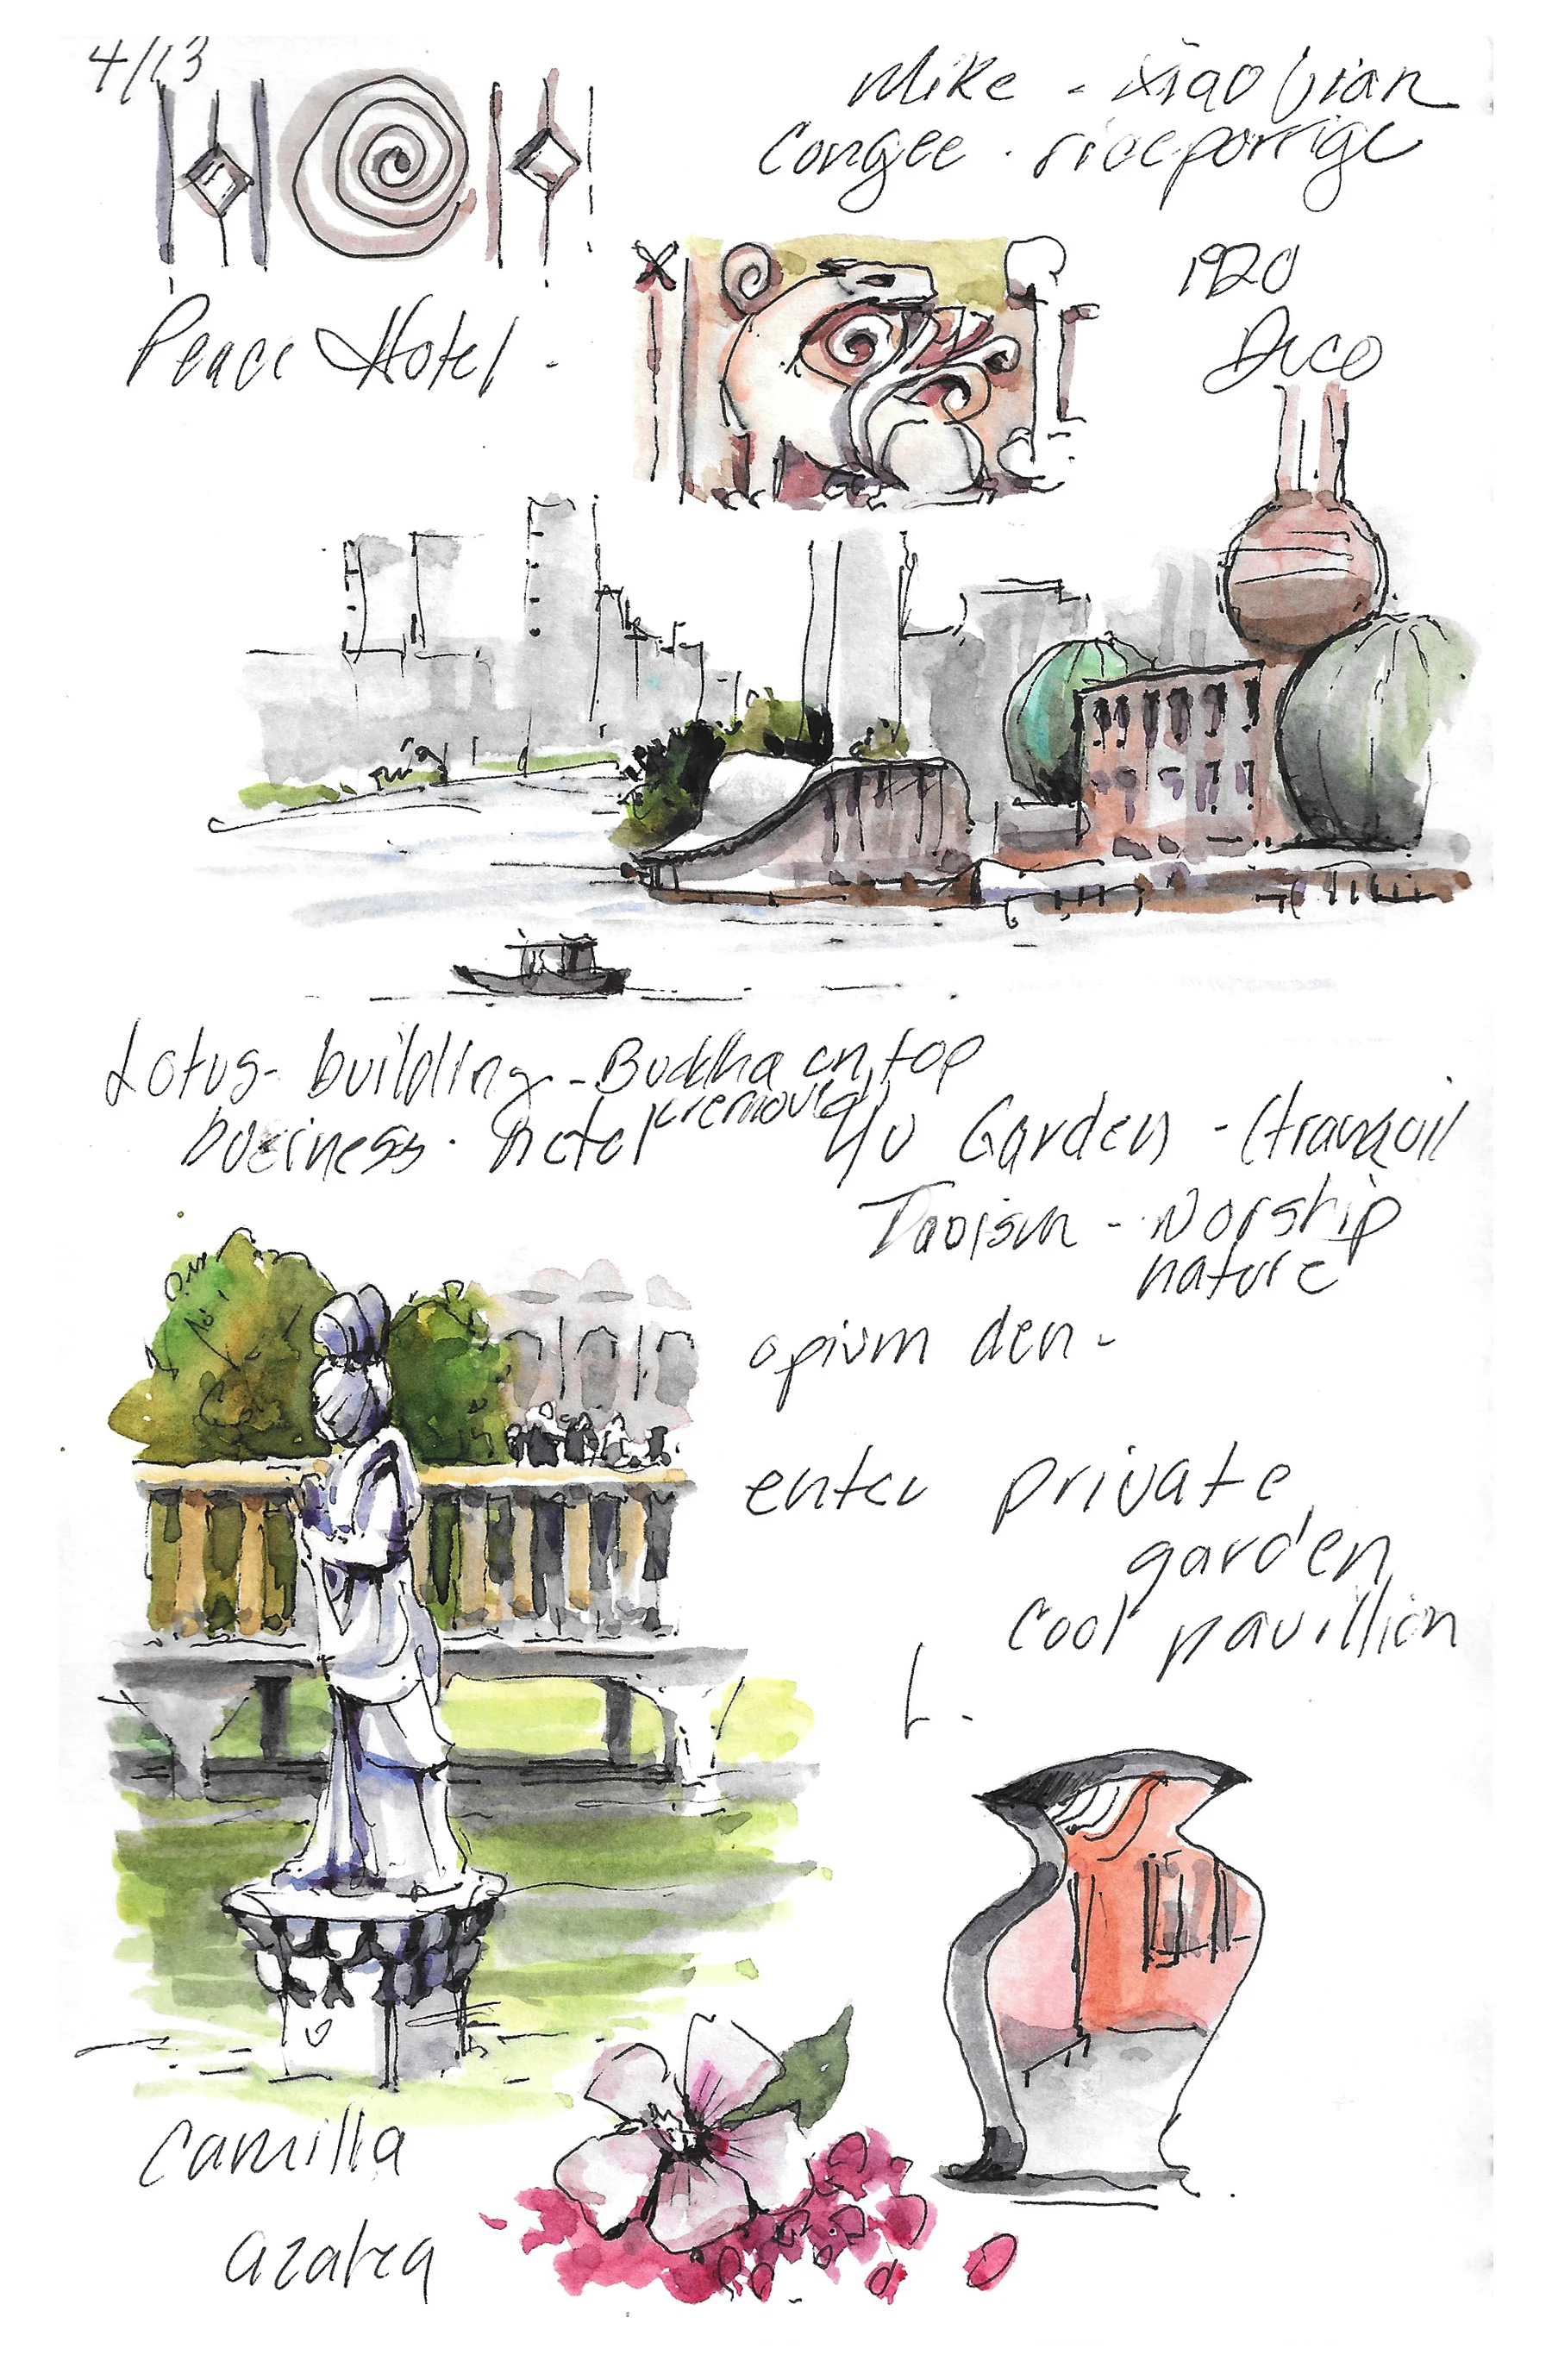 4/13
Mike - xiao bian
Congee - riceporrige
Peace Hotel -
1920
Deco
Lotus - building - Buddha on top
business - hotel (removed)
Yu Garden - (tranquil
Daoism - worship
nature
opium den -
enter private
garden
cool pavillion
Camilla
azalea